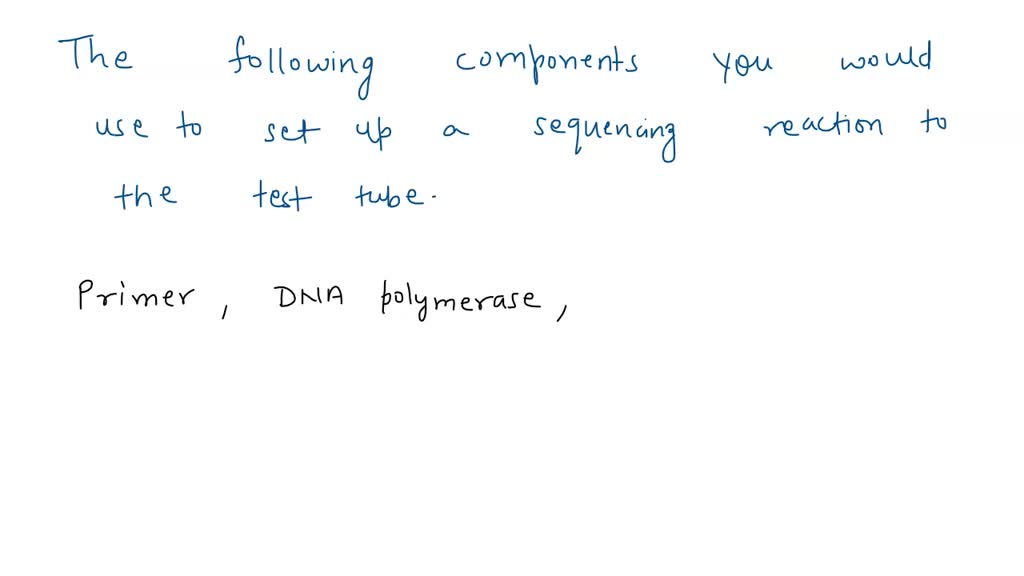 The following components you would
use to set up a sequencing reaction to
the test tube.
Primer, DNA polymerase,